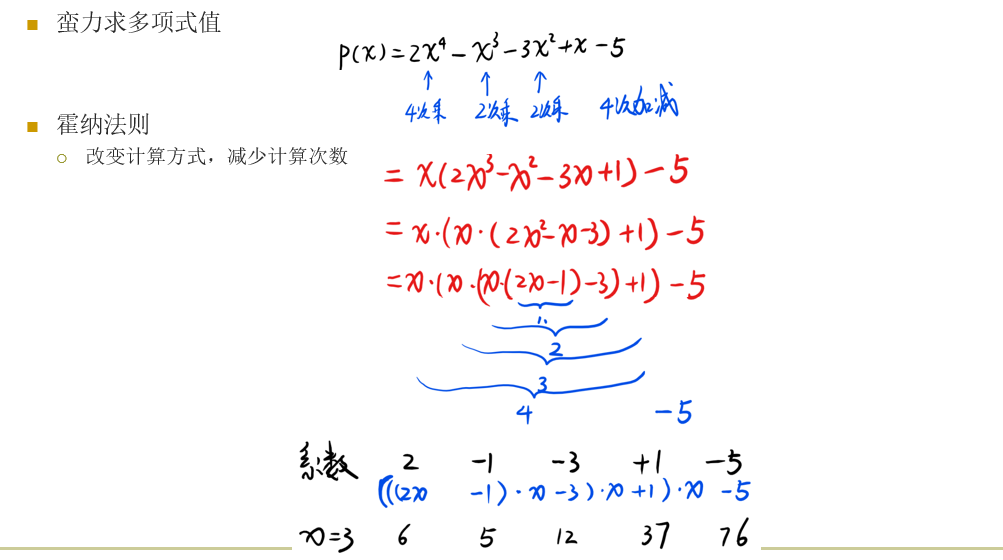 蛮力求多项式值
P(x)=2x⁴-x³-3x²+x-5
4次乘 2次乘 2次乘 4次加减
霍纳法则
改变计算方式，减少计算次数
= x(2x³-x²-3x+1)-5
= x·(x·(2x²-x-3)+1)-5
=x·(x·(x·(2x-1)-3)+1)-5
1.
2
3
4 -5
系数 2 -1 -3 +1 -5
(((2x -1)·x -3)·x +1)·x -5
x=3 6 5 12 37 76